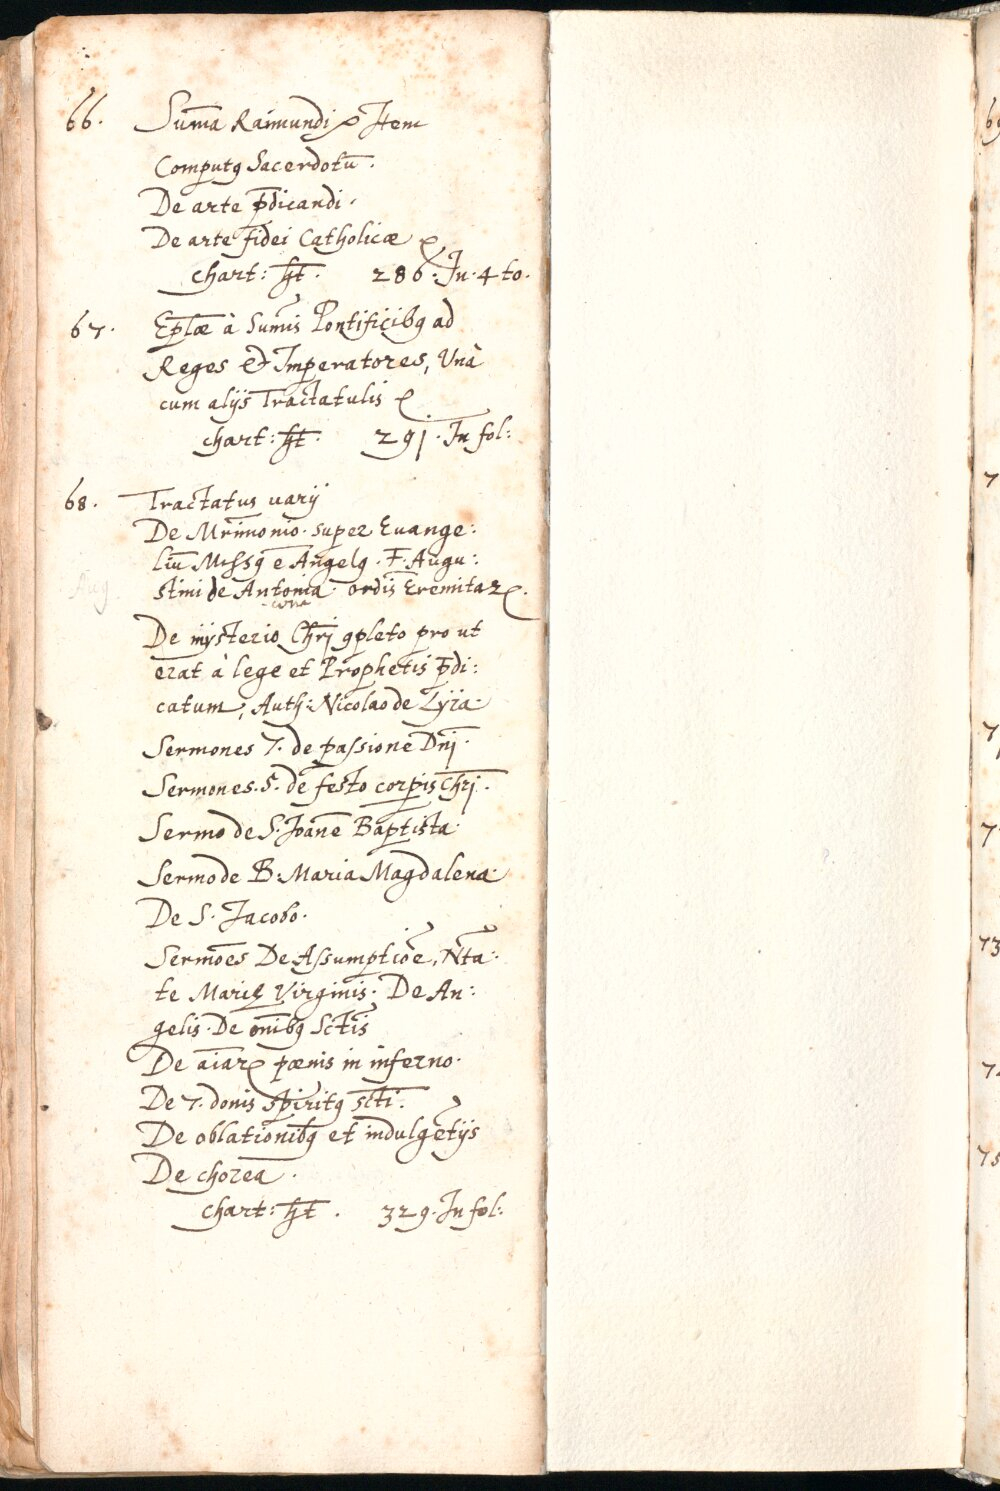 66. Suma Raimundi Item
Computꝯ Sacerdotū.
De arte p̄dicandi.
De arte fidei Catholicæ
chart: ht. 286. In. 4to.
67. Eplæ à Sumis Pontificibꝯ ad
Reges et Imperatores, Unà
cum alijs Tractatulis
chart: ht. 291. In fol:
68. Tractatus varij
De Mrimonio. super Euange:
liū Missꝯ ē Angelꝯ. F. Augu:
Aug stini de Antonia ordis Eremitarꝝ.
cona
De mysterio Chrj ꝯpleto pro ut
erat à lege et Prophetis p̄di:
catum, Auth: Nicolao de Lyra.
Sermones 7. de passione Dnj.
Sermones. 5. de festo corpis Chrj.
Sermo de S. Joāne Baptista.
Sermo de B: Maria Magdalena.
De S. Jacobo.
Sermōes De Assumptiōe, Nta:
te Marię Virginis. De An:
gelis. De oībꝯ Sctis
De aīarꝝ pænis in inferno.
De 7. donis spiritꝯ scti.
De oblationibꝯ et indulgētijs
De chorea.
chart: ht. 329. In fol:
69
7
7
7
73
7
75